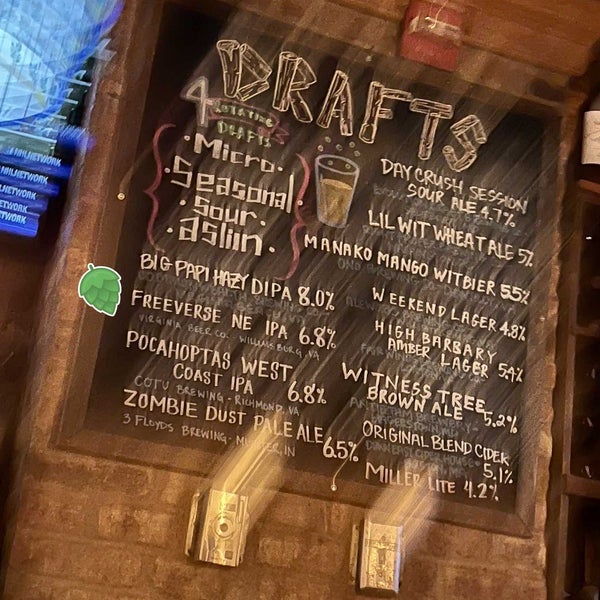 NHL NETWORK
NHL NETWORK
NETWORK
NETWORK
DRAFTS
4 ROTATING
DRAFTS
·Micro·
·Seasonal·
·Sour·
·aslin·
BIG PAPI HAZY DIPA 8.0%
FREEVERSE NE IPA 6.8%
VIRGINIA BEER CO. - WILLIAMSBURG, VA
POCAHOPTAS WEST
COAST IPA 6.8%
COTU BREWING - RICHMOND, VA
ZOMBIE DUST PALE ALE 6.5%
3 FLOYDS BREWING - MUNSTER, IN
DAY CRUSH SESSION
SOUR ALE 4.7%
LIL WIT WHEAT ALE 5%
MANAKO MANGO WITBIER 5.5%
WEEKEND LAGER 4.8%
HIGH BARBARY
AMBER LAGER 5.4%
WITNESS TREE
BROWN ALE 5.2%
ORIGINAL BLEND CIDER
5.1%
MILLER LITE 4.2%